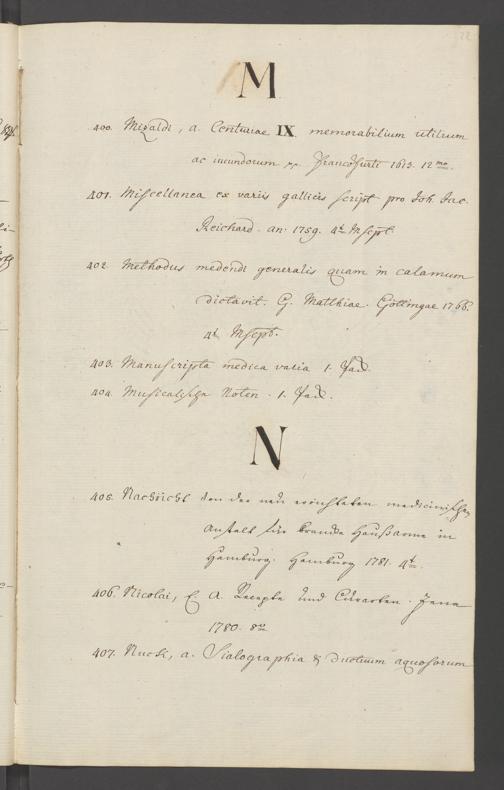 M
400. Mizaldi, a. Centuriae IX memorabilium utilium
ac iucundorum Francofurti 1613. 12mo.
401. Miscellanea ex variis gallicis script pro Joh. Jac.
Reichard. an. 1759. 4t. Mscpt.
402. Methodus medendi generalis quam in calamum
dictavit. G. Matthiae. Göttingae 1766.
4t. Mscpt.
403. Manuscripta medica varia 1. Fasc.
404. Musicalische Noten. 1. Fasc.
N
405. Nachricht von der neu errichteten medicinischen
Anstalt für kranke Haußarme in
Hamburg. Hamburg 1781. 4to.
406. Nicolai, E. A. Recepte und Curarten. Jena
1780. 8vo.
407. Nuck, a. Sialographia & ductuum aquosorum